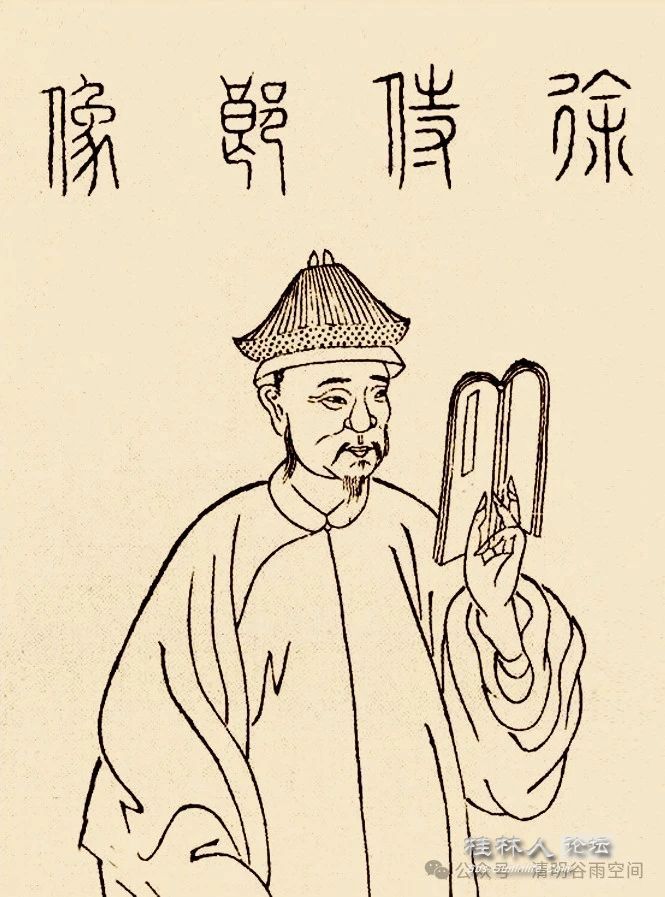 徐侍郎像
桂林人论坛
公众号 · 清明谷雨空间